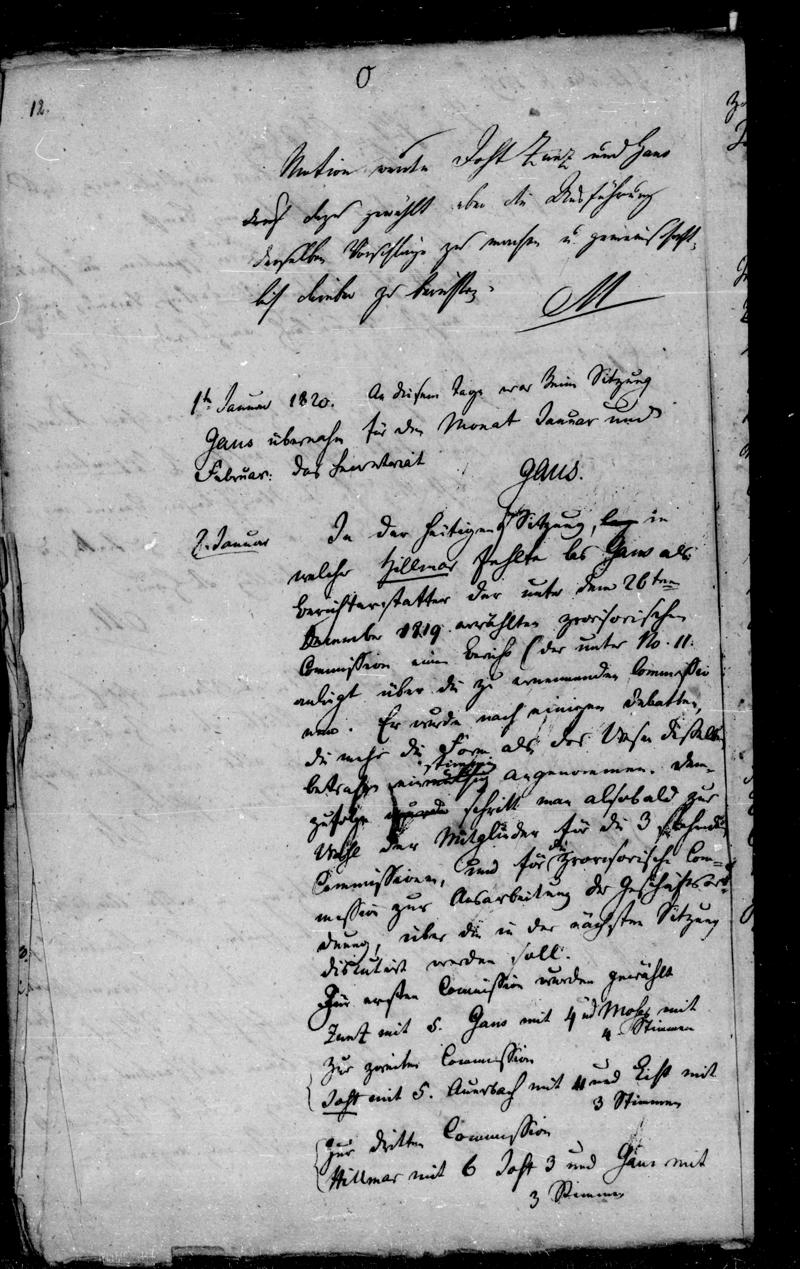 12.
Motion wurde Jost Zunz und Gans
gewählt über die Ausführung
derselben Vorschläge zu machen u. gemeinschaft-
lich darüber zu berichten.
M
1t Januar 1820. An diesem Tage war keine Sitzung
Gans übernahm für den Monat Januar und
Februar das Secretariat
Gans.
2. Januar In der heutigen Sitzung, in
welcher Hillmar fehlte las Gans als
Berichterstatter der unter dem 26ten
Dezember 1819. erwählten provisorischen
Commission einen Bericht (der unter No. 11.
anliegt über die zu ernennenden Commissio
nen. Er wurde nach einigen Debatten,
die mehr die Form als das Wesen desselben
betrafen einstimmig angenommen. Dem-
zufolge schritt man alsobald zur
Wahl der Mitglieder für die 3 stehenden
Commissionen, und für die provisorische Com-
mission zur Ausarbeitung der Geschäftsord-
nung, über die in der nächsten Sitzung
discutirt werden soll.
Zur ersten Commission wurden gewählt
Zunz mit 5. Gans mit 4 und Moser mit
4 Stimmen
Zur zweiten Commission
Jost mit 5. Auerbach mit 4 und List mit
3 Stimmen
Zur dritten Commission
Hillmar mit 6 Jost 3 und Gans mit
3 Stimmen